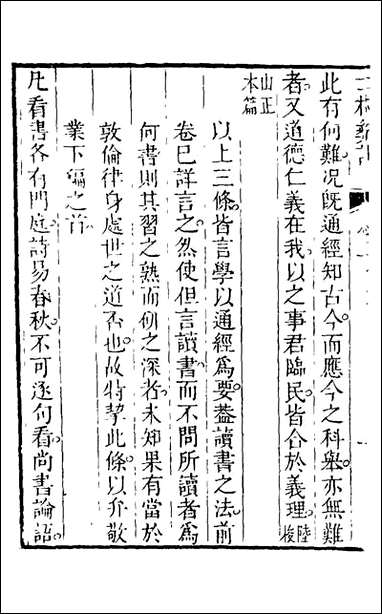 此有何難况既通經知古今而應今之科舉亦無難
者又道德仁義在我以之事君臨民皆合於義理陸梭
山正本篇
以上三條皆言學以通經爲要葢讀書之法前
卷巳詳言之然使但言讀書而不問所讀者爲
何書則其習之熟而仞之深者未知果有當於
敦倫律身處世之道否也故特挈此條以弁敬
業下徧之首
凡看書各有門庭詩易春秋不可逐句看尚書論語